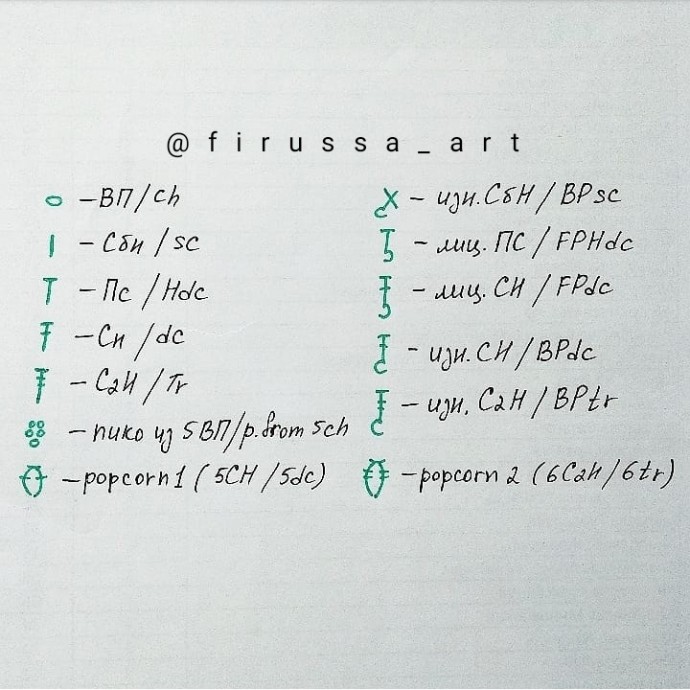 @firussa_art
– ВП / ch
– Сбн / sc
– Пс / Hdc
– Сн / dc
– С2Н / Tr
– пико из 5 ВП / p. from 5ch
– popcorn 1 ( 5СН / 5dc)
– изн. СбН / BPsc
– лиц. ПС / FPHdc
– лиц. СН / FPdc
– изн. СН / BPdc
– изн. С2Н / BPtr
– popcorn 2 (6С2Н / 6tr)